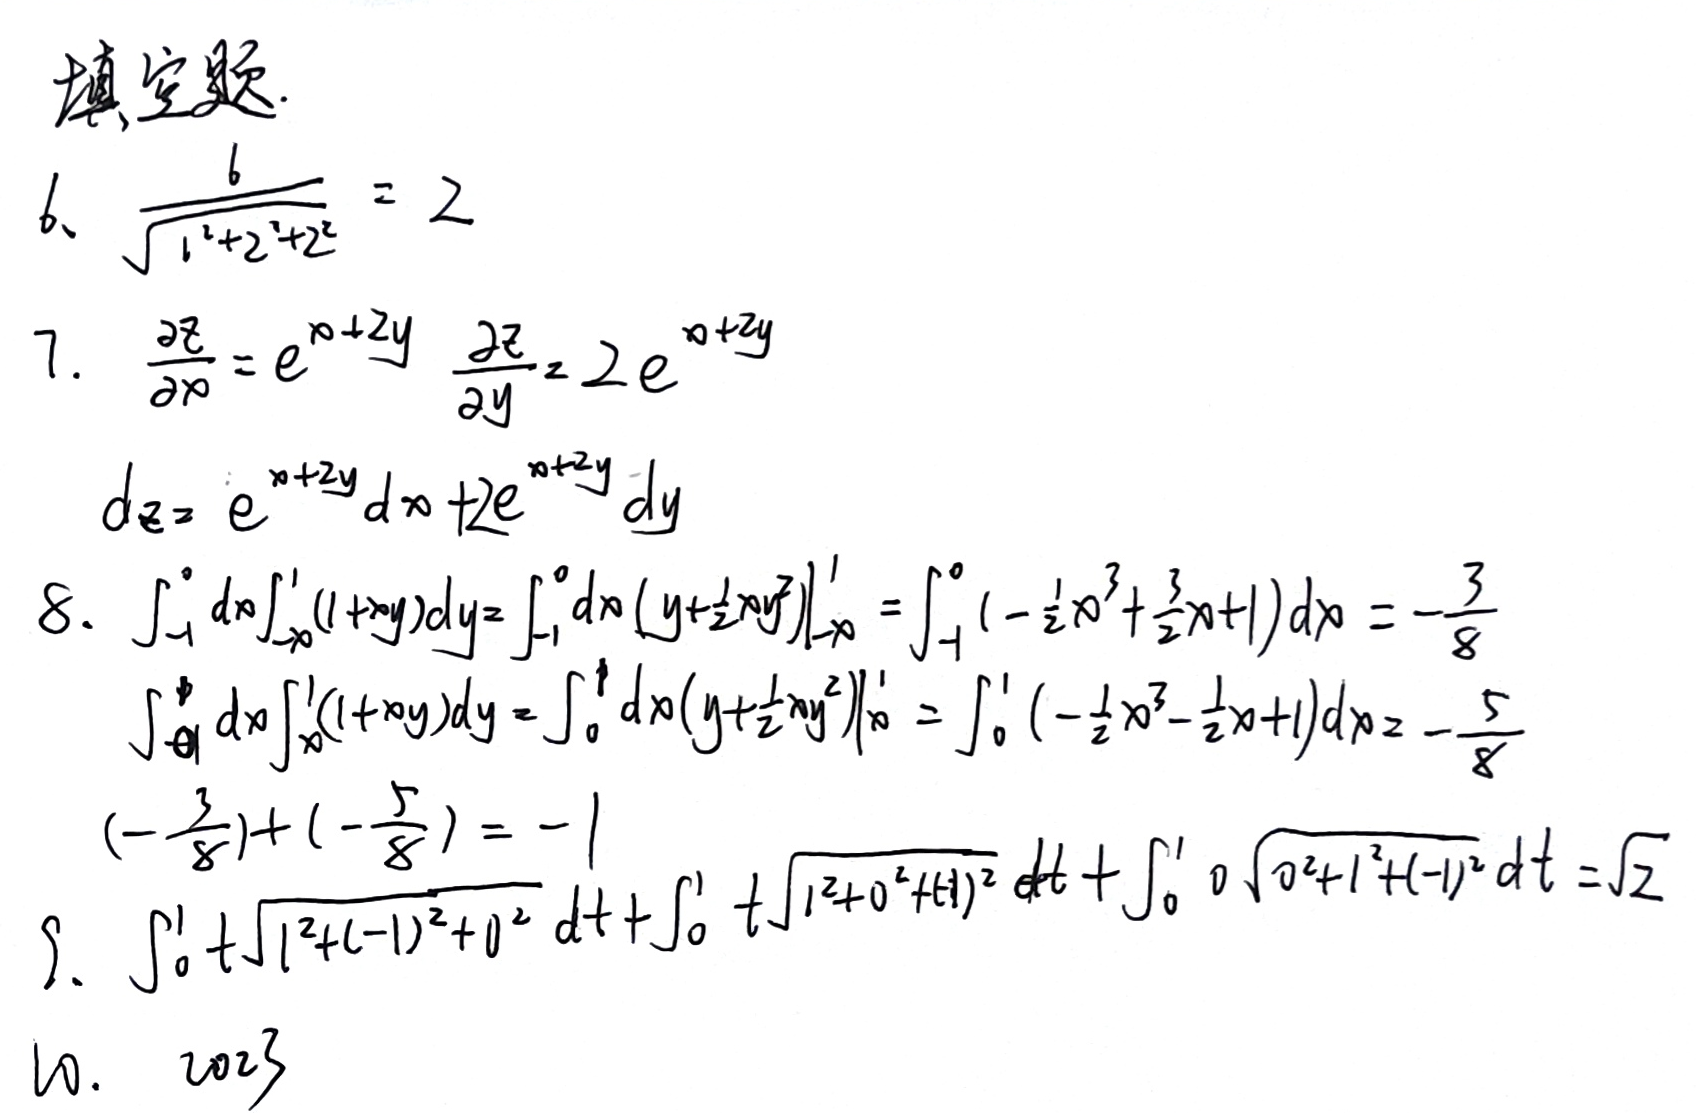 填空题.
6、 \frac{6}{\sqrt{1^2+2^2+2^2}} = 2
7. \frac{∂z}{∂x} = e^{x+2y} \frac{∂z}{∂y} = 2e^{x+2y}
dz = e^{x+2y} dx + 2e^{x+2y} dy
8. ∫_{-1}^{0} dx ∫_{-x}^{1} (1+xy)dy = ∫_{-1}^{0} dx (y+\frac{1}{2}xy^2)|_{-x}^{1} = ∫_{-1}^{0} (-\frac{1}{2}x^3+\frac{3}{2}x+1)dx = -\frac{3}{8}
∫_{0}^{1} dx ∫_{x}^{1} (1+xy)dy = ∫_{0}^{1} dx (y+\frac{1}{2}xy^2)|_{x}^{1} = ∫_{0}^{1} (-\frac{1}{2}x^3-\frac{1}{2}x+1)dx = -\frac{5}{8}
(-\frac{3}{8})+(-\frac{5}{8}) = -1
9. ∫_{0}^{1} t\sqrt{1^2+(-1)^2+0^2} dt + ∫_{0}^{1} t\sqrt{1^2+0^2+(-1)^2} dt + ∫_{0}^{1} 0\sqrt{0^2+1^2+(-1)^2} dt = \sqrt{2}
10. 2023